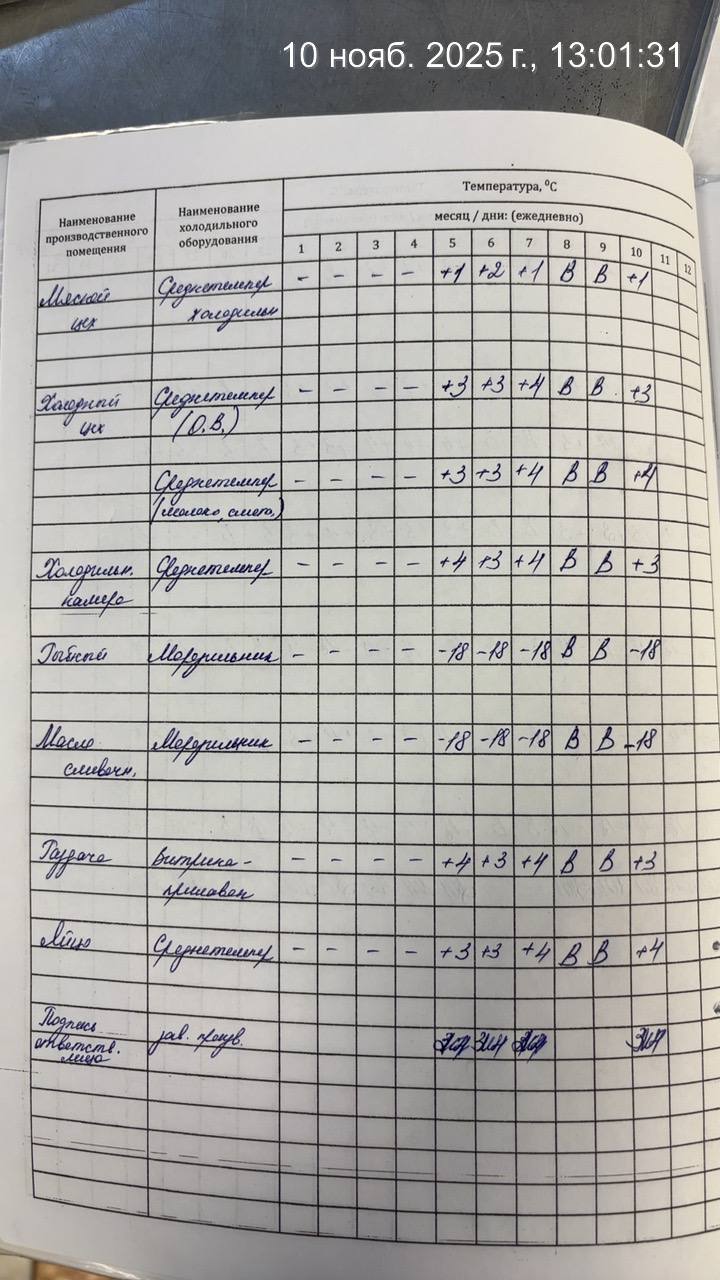 10 нояб. 2025 г., 13:01:31
Температура, ⁰С
Наименование производственного помещения
Наименование холодильного оборудования
месяц / дни: (ежедневно)
1 2 3 4 5 6 7 8 9 10 11 12
Мясной Среднетемпер - - - - +1 +2 +1 В В +1
цех холодильн
Холодный Среднетемпер - - - - +3 +3 +4 В В +3
цех (О.В.)
Среднетемпер - - - - +3 +3 +4 В В +4
(молоко, смета.)
Холодильн. Среднетемпер - - - - +4 +3 +4 В В +3
камера
Рыбный Морозильник - - - - -18 -18 -18 В В -18
Масло Морозильник - - - - -18 -18 -18 В В -18
сливочн.
Раздача Витрина- - - - - +4 +3 +4 В В +3
прилавок
Яйцо Среднетемпер - - - - +3 +3 +4 В В +4
Подпись
ответств. зав. произв.
лица